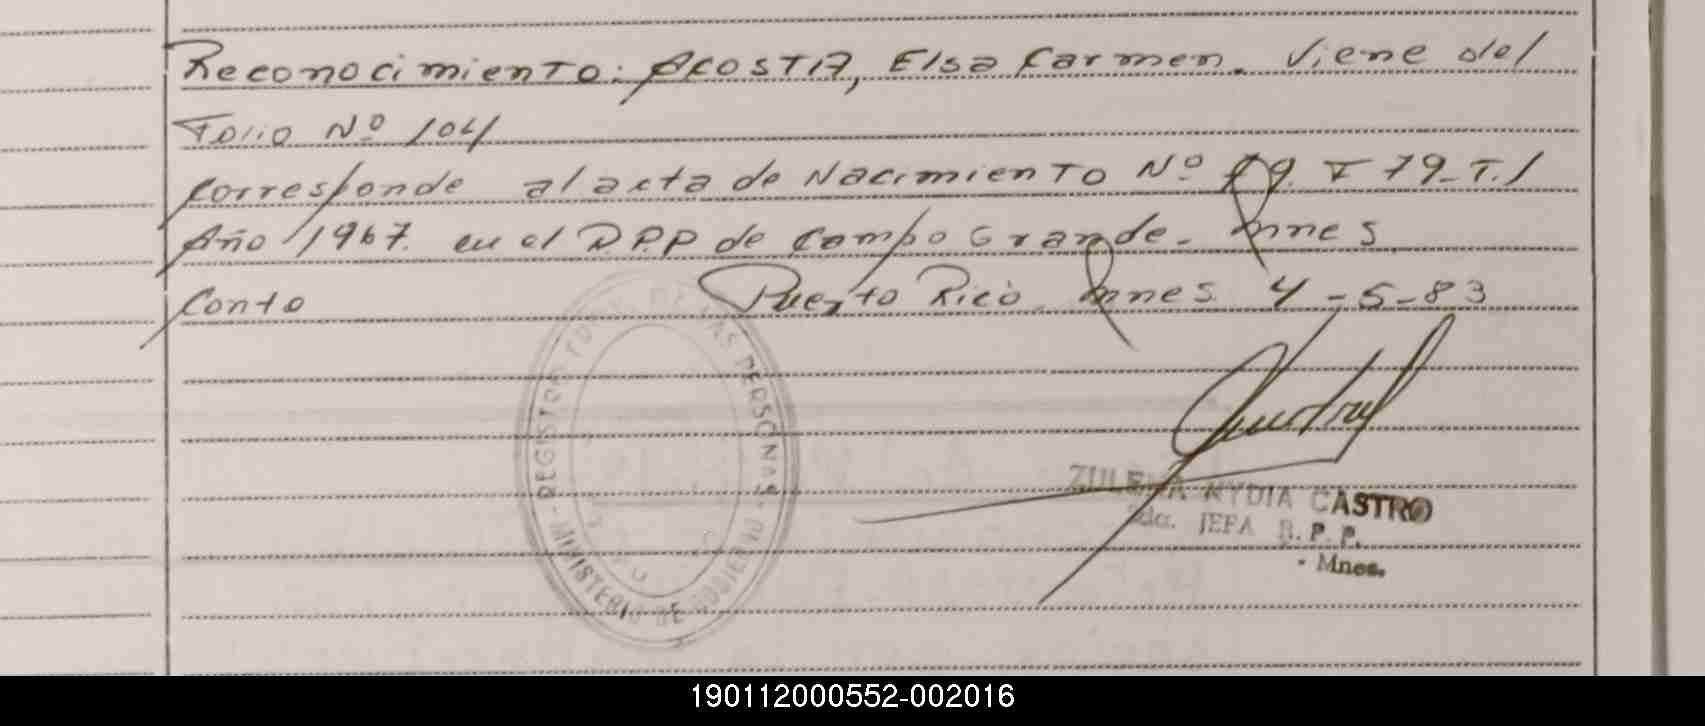 Reconocimiento: ACOSTA, Elsa Carmen. Viene del
Folio Nº 104
Corresponde al acta de Nacimiento Nº 79. F 79-T.1
Año 1967. en el D.P.P de Campo Grande - Mnes
Conto Puerto Rico. Mnes 4-5-83
REGISTRO DE LAS PERSONAS
MINISTERIO DE GOBIERNO
ZULEMA NYDIA CASTRO
2da. JEFA B. P. P.
- Mnes.
190112000552-002016